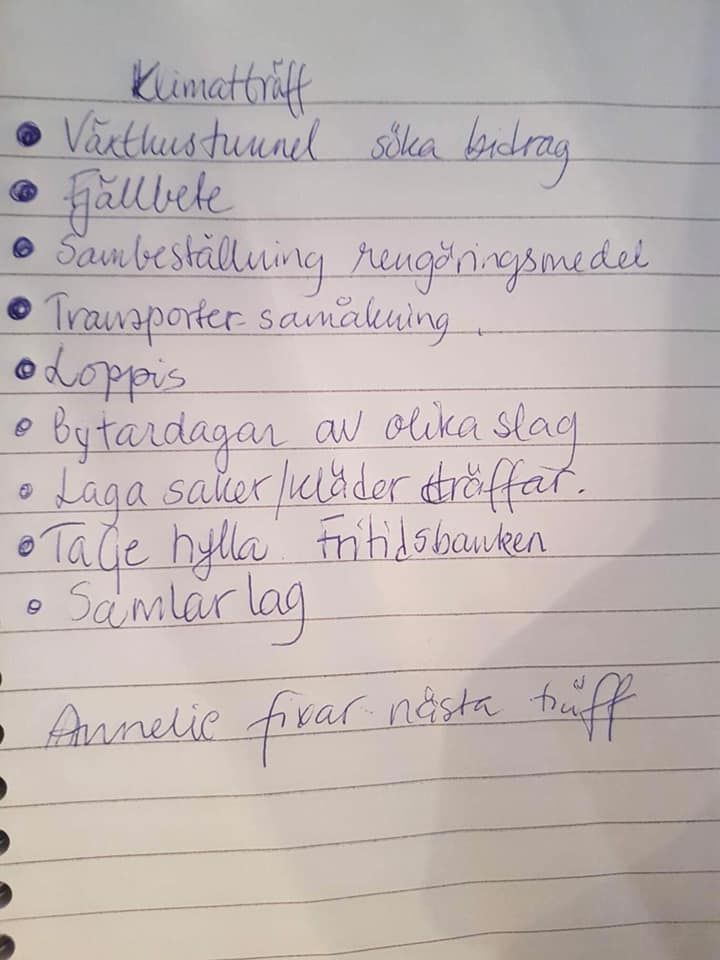 Klimatträff
• Växthustunnel söka bidrag
• Fjällbete
• Sambeställning rengöringsmedel
• Transporter-samåkning.
• Loppis
• Bytardagar av olika slag
• Laga saker/kläder träffar.
• TaGe hylla. Fritidsbanken
• Samlar lag
Annelie fixar nästa träff